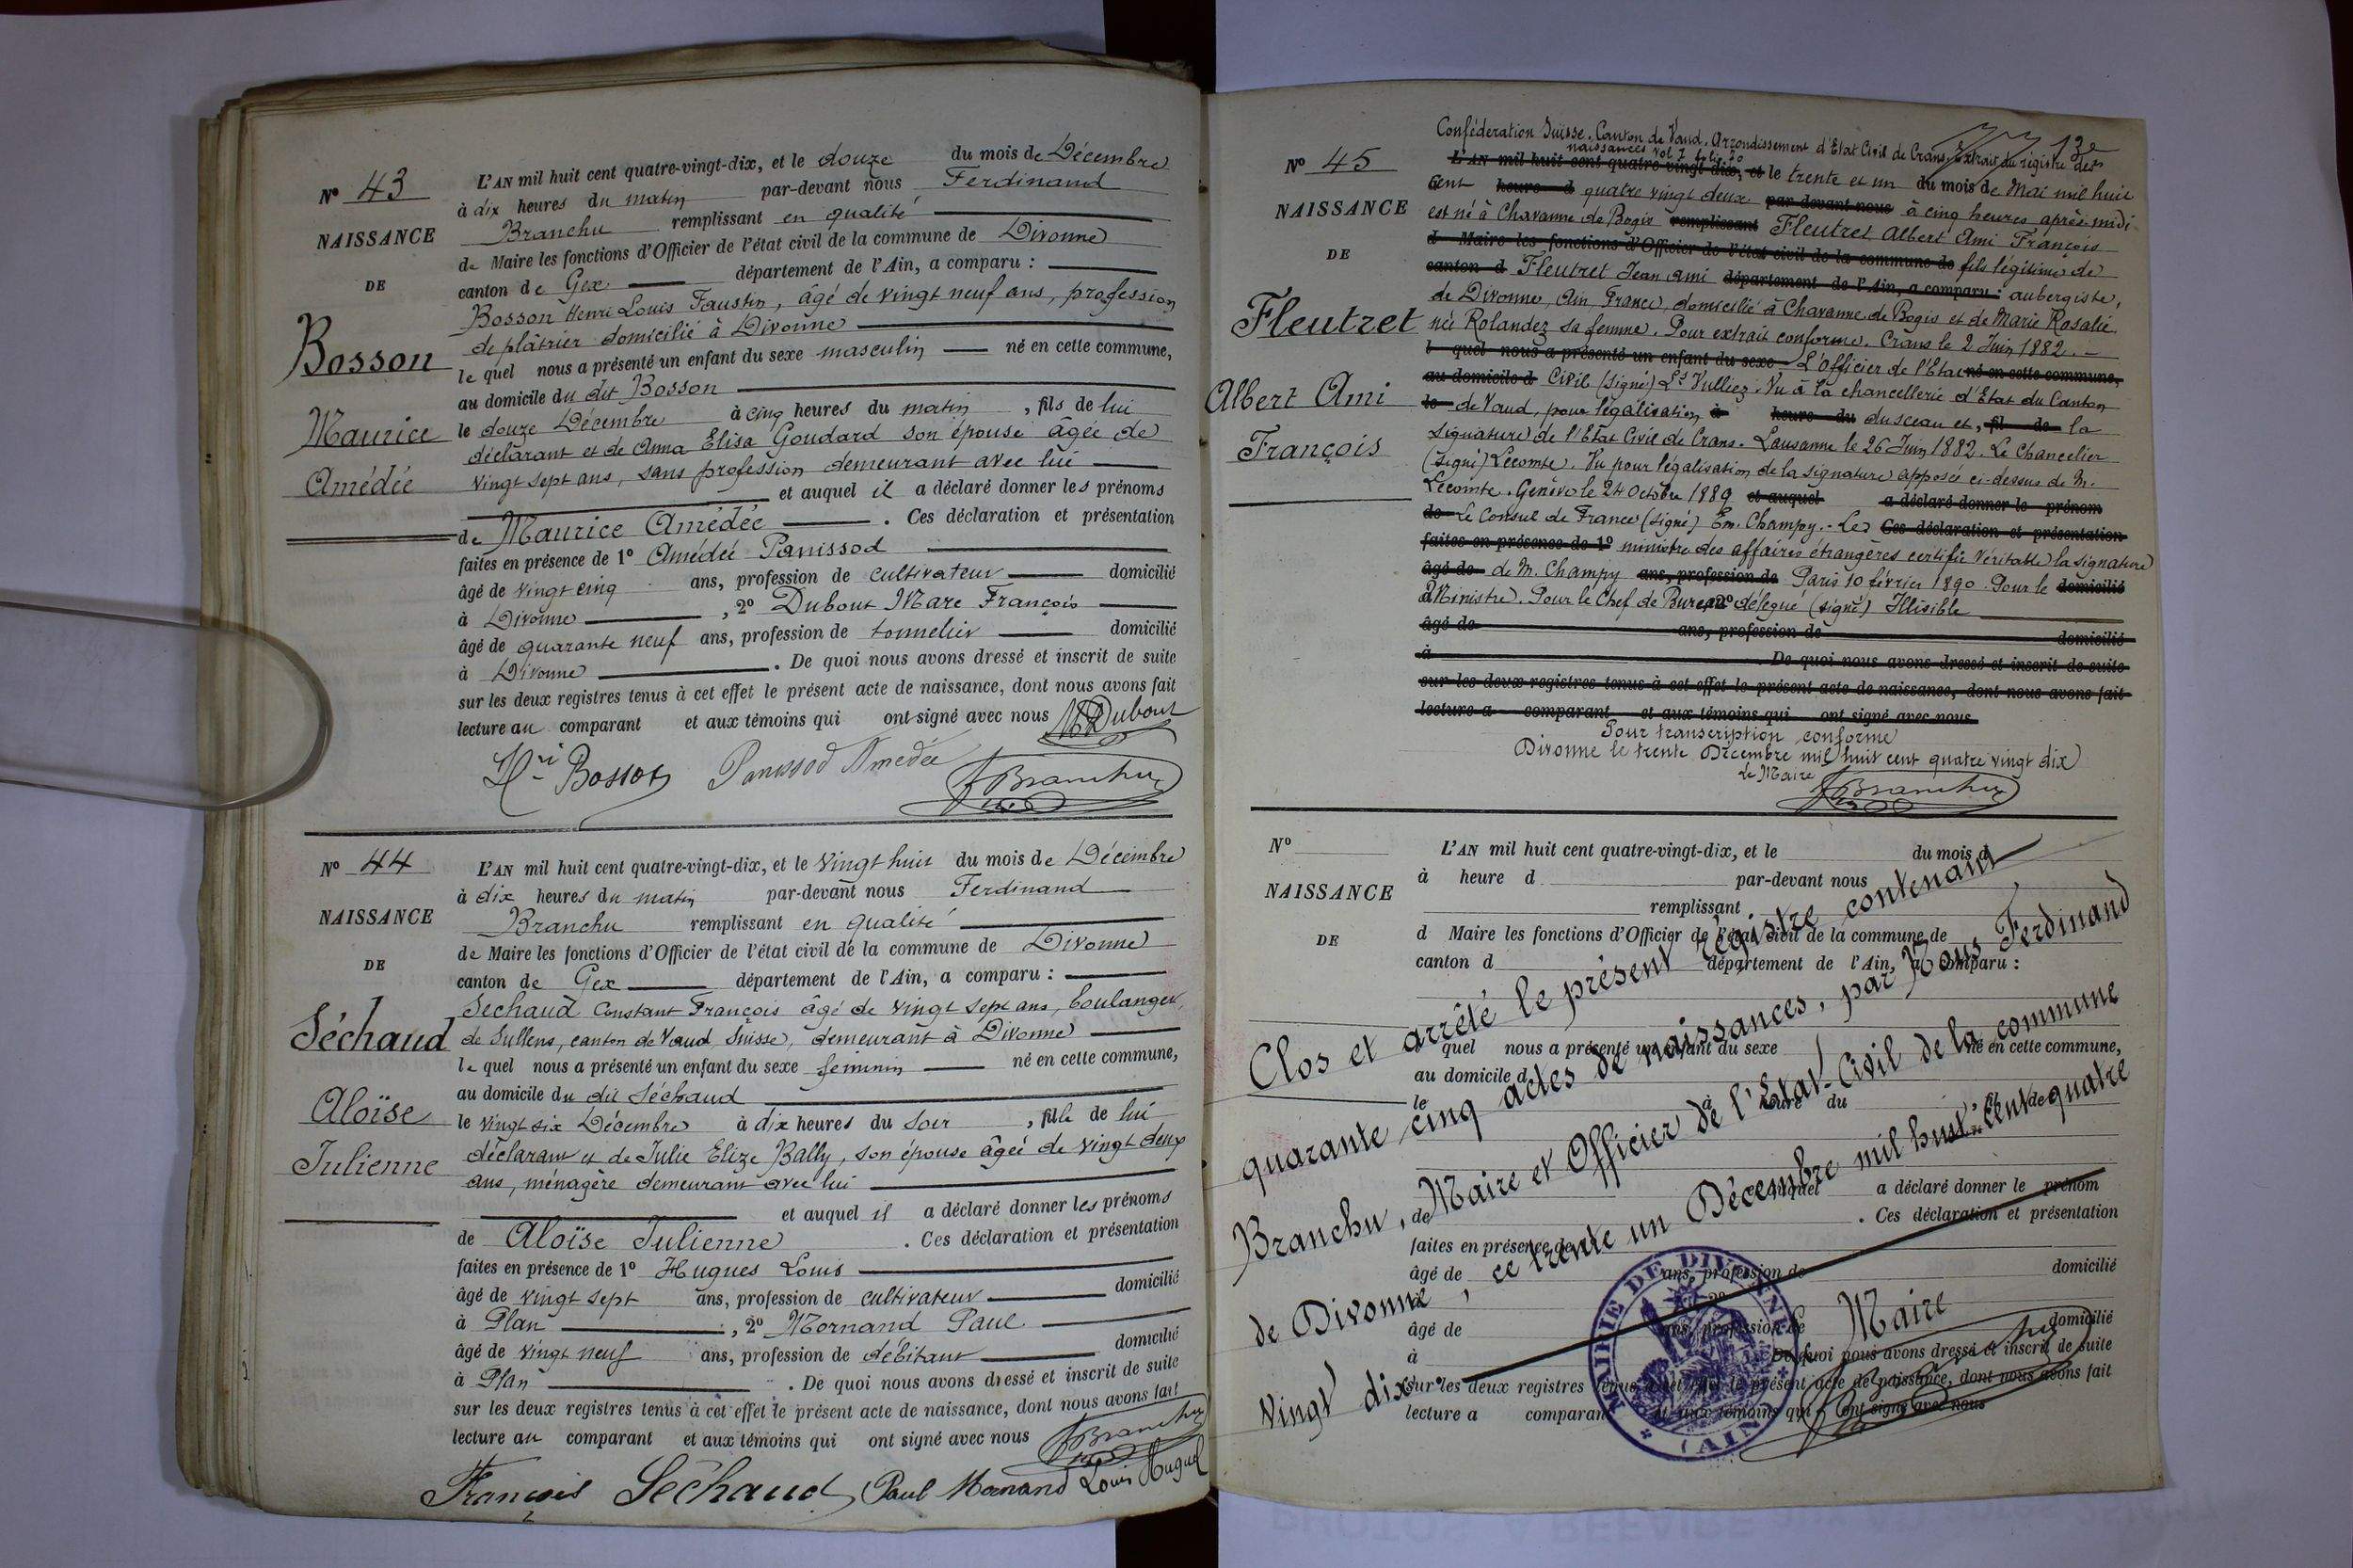 N° 43
NAISSANCE
DE
Bosson
Maurice
Amédée
L'AN mil huit cent quatre-vingt-dix, et le douze du mois de Décembre
à dix heures du matin par-devant nous Ferdinand
Branchu remplissant en qualité
de Maire les fonctions d'Officier de l'état civil de la commune de Divonne
canton de Gex département de l'Ain, a comparu :
Bosson Henri Louis Faustin, âgé de vingt neuf ans, profession
de plâtrier domicilié à Divonne
le quel nous a présenté un enfant du sexe masculin né en cette commune,
au domicile du dit Bosson
le douze Décembre à cinq heures du matin, fils de lui
déclarant et de Anna Elisa Goudard son épouse âgée de
vingt sept ans, sans profession demeurant avec lui
et auquel il a déclaré donner les prénoms
de Maurice Amédée . Ces déclaration et présentation
faites en présence de 1° Amédée Panissod
âgé de vingt cinq ans, profession de cultivateur domicilié
à Divonne , 2° Dubout Marc François
âgé de quarante neuf ans, profession de tonnelier domicilié
à Divonne . De quoi nous avons dressé et inscrit de suite
sur les deux registres tenus à cet effet le présent acte de naissance, dont nous avons fait
lecture au comparant et aux témoins qui ont signé avec nous Dubout
Hri Bosson Panissod Amédée Branchu
N° 44
NAISSANCE
DE
Séchaud
Aloïse
Julienne
L'AN mil huit cent quatre-vingt-dix, et le vingt huit du mois de Décembre
à dix heures du matin par-devant nous Ferdinand
Branchu remplissant en qualité
de Maire les fonctions d'Officier de l'état civil de la commune de Divonne
canton de Gex département de l'Ain, a comparu :
Sechaud Constant François âgé de vingt sept ans, boulanger,
de Sullens, canton de Vaud Suisse, demeurant à Divonne
le quel nous a présenté un enfant du sexe féminin né en cette commune,
au domicile du dit Séchaud
le vingt six Décembre à dix heures du soir , fille de lui
déclarant et de Julie Elize Bally, son épouse âgée de vingt deux
ans, ménagère demeurant avec lui
et auquel il a déclaré donner les prénoms
de Aloïse Julienne . Ces déclaration et présentation
faites en présence de 1° Hugues Louis
âgé de vingt sept ans, profession de cultivateur domicilié
à Plan , 2° Mornand Paul
âgé de vingt neuf ans, profession de débitant domicilié
à Plan . De quoi nous avons dressé et inscrit de suite
sur les deux registres tenus à cet effet le présent acte de naissance, dont nous avons fait
lecture au comparant et aux témoins qui ont signé avec nous Branchu
François Séchaud Paul Mornand Louis Hugues
N° 45
NAISSANCE
DE
Fleutret
Albert Ami
François
Confédération Suisse. Canton de Vaud. Arrondissement d'Etat Civil de Crans. Extrait du registre des
naissances vol 7
L'AN mil huit cent quatre-vingt-dix, et le trente et un du mois de Mai mil huit
cent heure d quatre vingt deux par-devant nous à cinq heures après-midi
est né à Chavanne de Bogis remplissant Fleutret Albert Ami François
d Maire les fonctions d'Officier de l'état civil de la commune de fils légitime de
canton d Fleutret Jean Ami département de l'Ain, a comparu : aubergiste,
de Divonne, Ain France, domicilié à Chavanne de Bogis et de Marie Rosalie
née Rolandez sa femme. Pour extrait conforme. Crans le 2 Juin 1882. -
l quel nous a présenté un enfant du sexe L'Officier de l'Etat né en cette commune,
au domicile d Civil (signé) Ls Vulliez. Vu à la chancellerie d'Etat du Canton
le de Vaud, pour légalisation à heure du du sceau et , fil de la
signature de l'Etat Civil de Crans. Lausanne le 26 Juin 1882. Le Chancelier
(signé) Lecomte. Vu pour légalisation de la signature apposée ci-dessus de M.
Lecomte. Genève le 24 Octobre 1889 et auquel a déclaré donner le prénom
de Le Consul de France (signé) Em. Champy. - Le Ces déclaration et présentation
faites en présence de 1° ministre des affaires étrangères certifie véritable la signature
âgé de de M. Champy ans, profession de Paris 10 février 1890. Pour le domicilié
à Ministre. Pour le Chef de Bureau 2° délégué (signé) Illisible
âgé de ans, profession de domicilié
à . De quoi nous avons dressé et inscrit de suite
sur les deux registres tenus à cet effet le présent acte de naissance, dont nous avons fait
lecture a comparant et aux témoins qui ont signé avec nous
Pour transcription conforme
Divonne le trente Décembre mil huit cent quatre vingt dix
Le Maire
Branchu
N°
NAISSANCE
DE
L'AN mil huit cent quatre-vingt-dix, et le du mois d
à heure d par-devant nous
remplissant
d Maire les fonctions d'Officier de l'état civil de la commune de
canton d département de l'Ain, a comparu :
l quel nous a présenté un enfant du sexe né en cette commune,
au domicile d
le à heure du , fil de
et auquel a déclaré donner le prénom
de . Ces déclaration et présentation
faites en présence de 1°
âgé de ans, profession de domicilié
à , 2°
âgé de ans, profession de domicilié
à . De quoi nous avons dressé et inscrit de suite
sur les deux registres tenus à cet effet le présent acte de naissance, dont nous avons fait
lecture a comparant et aux témoins qui ont signé avec nous
Clos et arrêté le présent registre contenant
quarante cinq actes de naissances, par Nous Ferdinand
Branchu, Maire et Officier de l'Etat-Civil de la commune
de Divonne, ce trente un Décembre mil huit cent quatre
vingt dix.
Le Maire
Branchu
MAIRIE DE DIVONNE
(AIN)